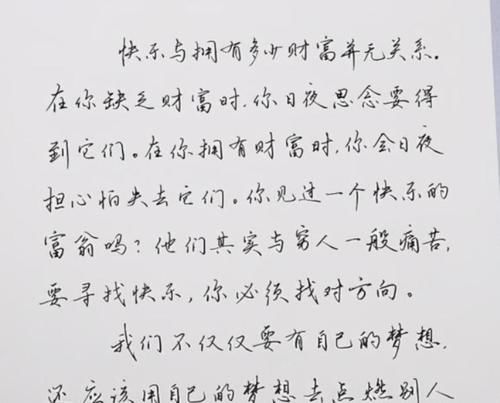 快乐与拥有多少财富并无关系。
在你缺乏财富时,你日夜思念要得
到它们。在你拥有财富时,你会日夜
担心怕失去它们。你见过一个快乐的
富翁吗?他们其实与穷人一般痛苦,
要寻找快乐,你必须找对方向。
我们不仅仅要有自己的梦想,
还应该用自己的梦想去点燃别人